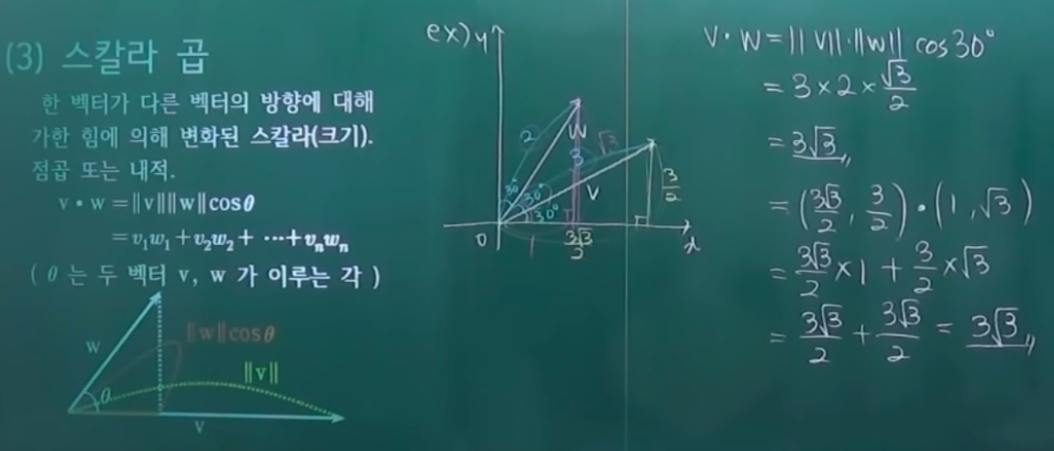 (3) 스칼라 곱
한 벡터가 다른 벡터의 방향에 대해
가한 힘에 의해 변화된 스칼라(크기).
점곱 또는 내적.
v • w = ||v||||w||cosθ
= v₁w₁ + v₂w₂ + ⋯ + vₙwₙ
( θ 는 두 벡터 v, w 가 이루는 각 )
||w||cosθ
w
||v||
θ
v
ex) y
2
w
√3
3
30°
30°
v
3/2
30°
0
1
3√3/2
x
v • w = ||v||·||w|| cos30°
= 3 × 2 × √3/2
= 3√3 〃
= (3√3/2, 3/2) • (1, √3)
= 3√3/2 × 1 + 3/2 × √3
= 3√3/2 + 3√3/2 = 3√3 〃